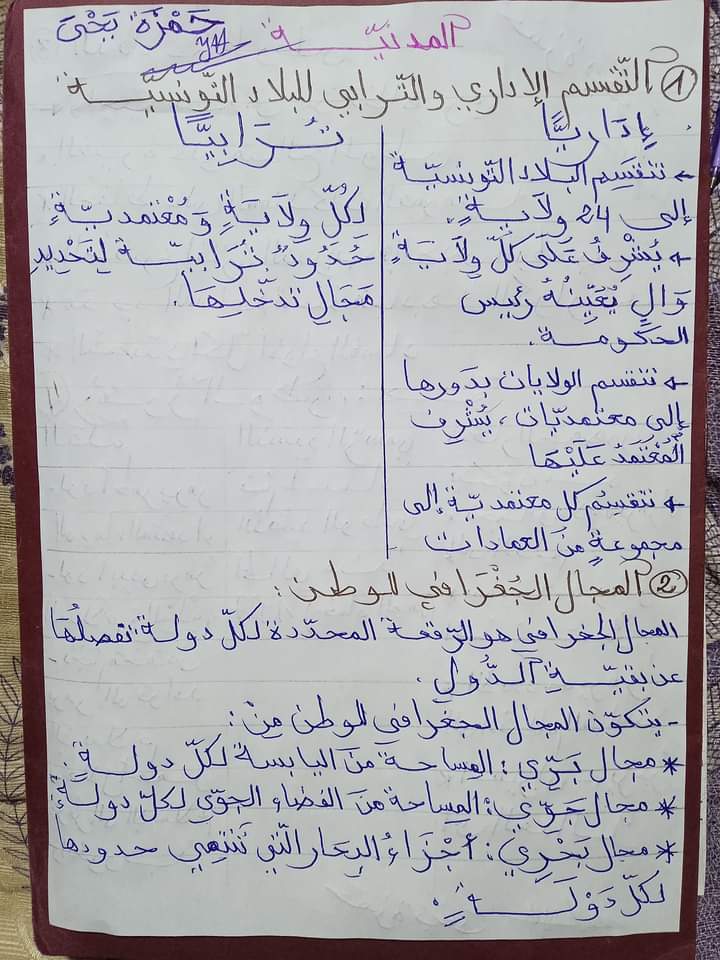 المدنيّة
حَمْزَة يَحْيَ
① التّقسيم الإداري والتّرابي للبلاد التّونسيّة
إِدَارِيًّا
← تنقسم البلاد التّونسيّة
إلى 24 ولايةٍ.
← يُشْرِفُ عَلَى كلّ ولايَةٍ
وَالٍ يُعَيِّنُهُ رئيس
الحكومة.
← تنقسم الولايات بدَورها
إلى معتمديّات، يُشْرِف
المُعْتَمَدُ عَلَيْهَا
← تنقسم كل معتمديّة إلى
مجموعةٍ منَ العمادات
تُرَابِيًّا
لِكُلّ ولايَةٍ وَمُعْتمديّةٍ
حُدُودٌ تُرَابيّة لِتَحْدِيدِ
مَجَالِ تدخّلِهَا.
② المجال الجُغْرَافي للوطن:
المجال الجغرافي هو الرّقعة المحدّدة لكلّ دولة تفصلُهَا
عن بقيّة الدُّولِ.
- يتكوّن المجال الجغرافي للوطن مِنْ:
* مجال بَرِّي: المِساحة منَ اليابسة لكلّ دولةٍ.
* مجال جَوِّي: المِساحة منَ الفضاء الجوّي لكلّ دولةٍ.
* مجال بَحْرِي: أجْزَاءُ البِحَار الّتي تَنْتَهِي حدودها
لكلّ دَوْلَةٍ.